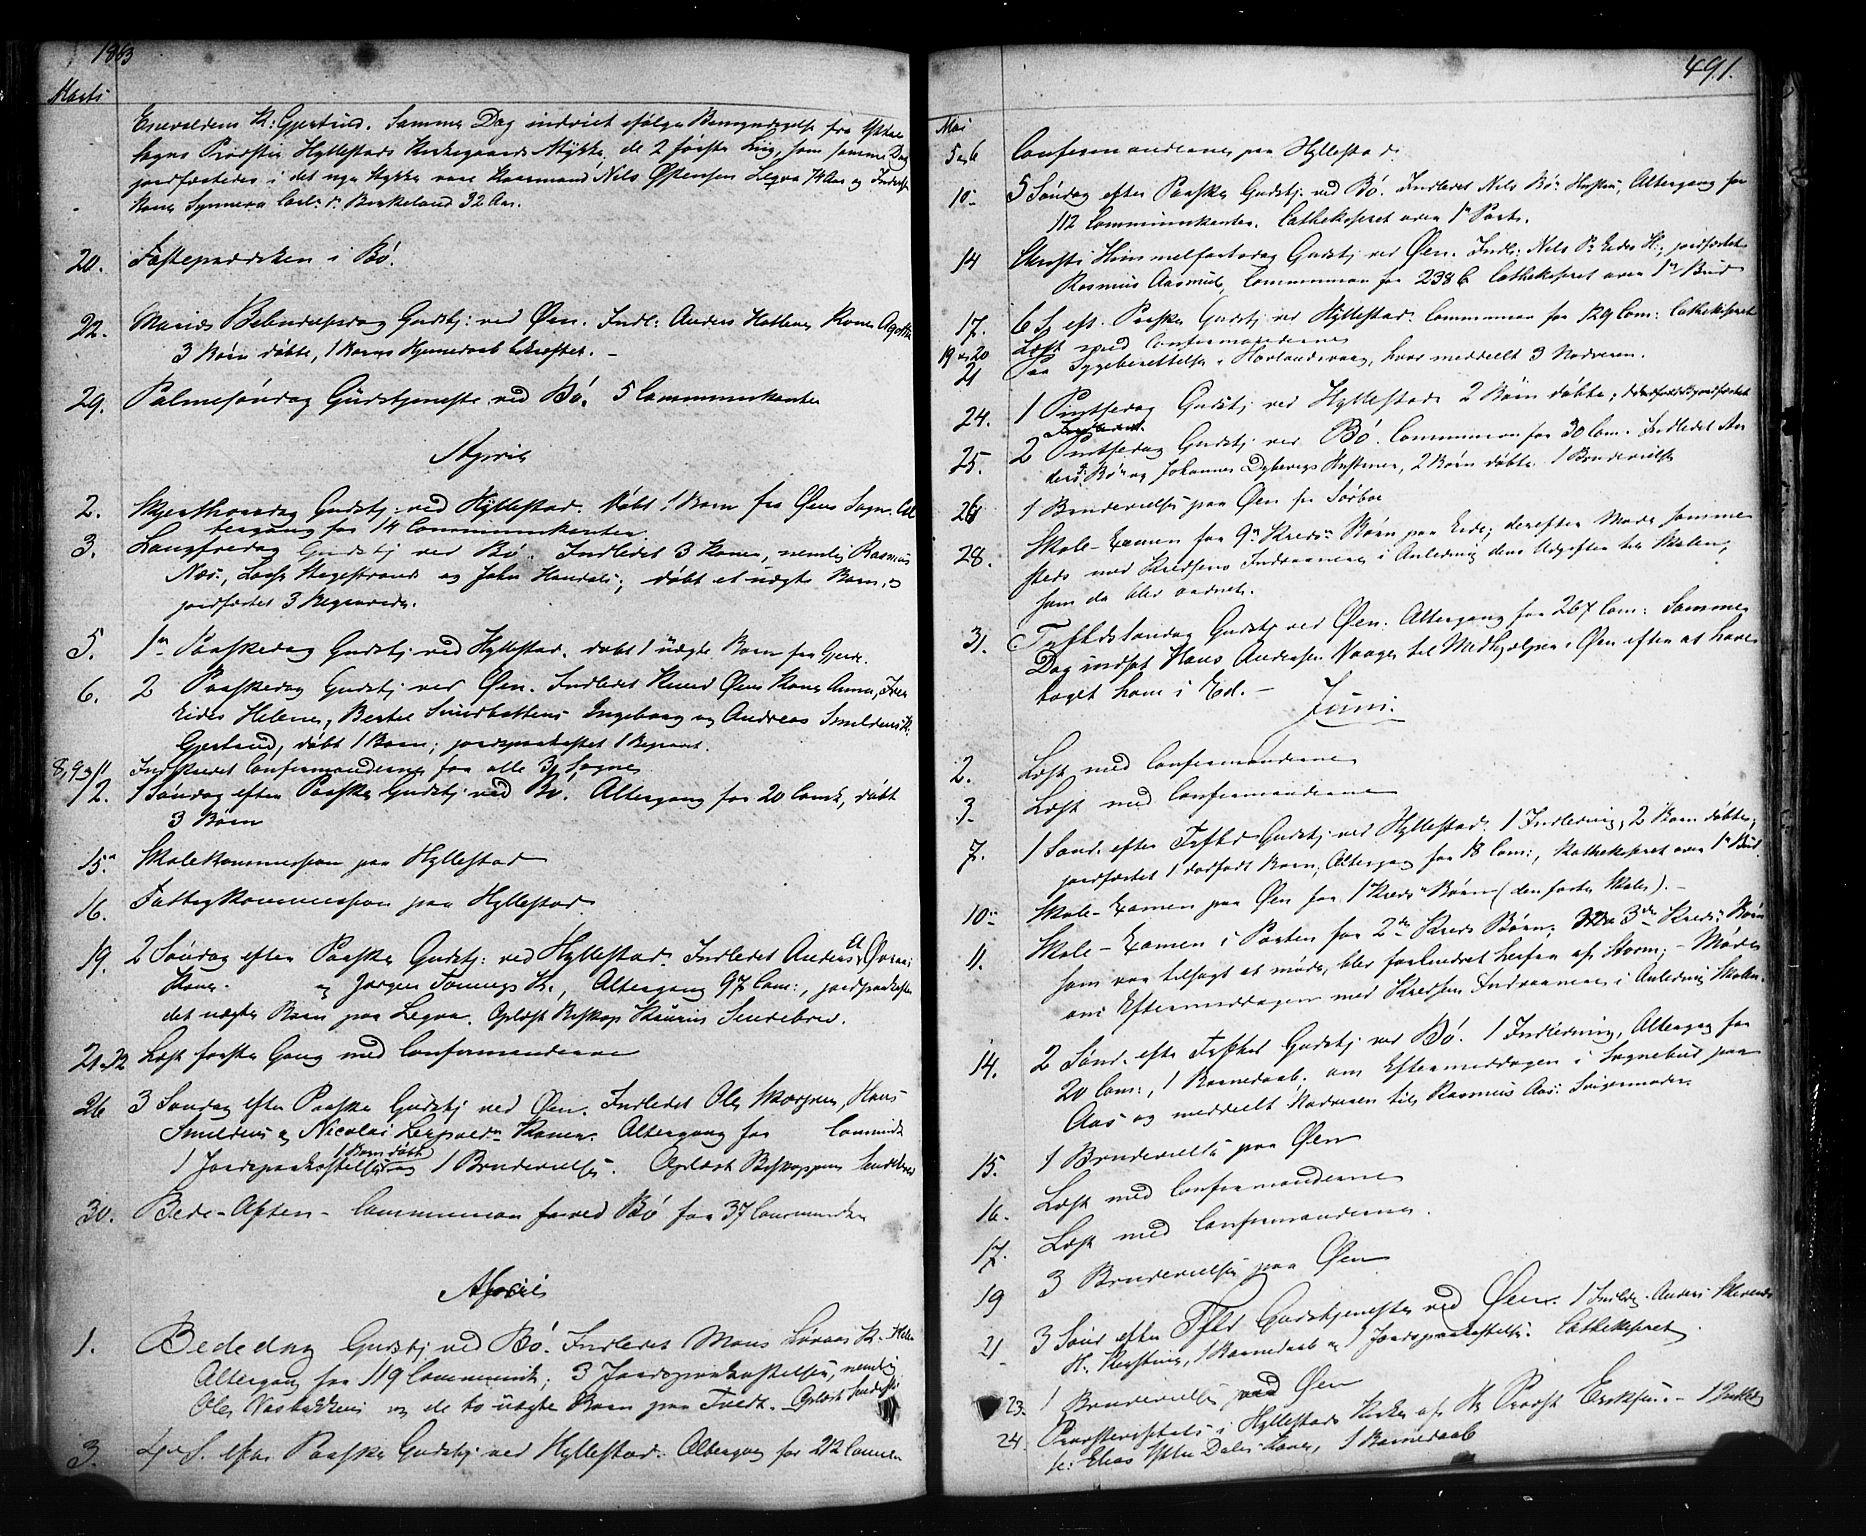 1863
Marts
Enevoldsens K: Gjertrud. Samme Dag indviet ifølge Bemyndigelse fra Ytre
Sogns Provsti Hyllestads Kirkegaards Stykke, de 2 første Lig, som samme Dag
jordfæstedes i det nye Stykke vare Kaarmand Nils Østensen Legva 74 Aar og
Kone Synneva Carlsd. Birkeland 32 Aar.
20. Fasteprædiken i Bø.
22. Mariæ Bebudelsesdag Gudstj: ved Øen. Indl: Anders Kone Agatha
3 Børn døbte, 1 Barns Hjemmedaab bekræftet. –
29. Palmesøndag Gudstjeneste ved Bø. 5 Communikanter
April
2. Skjærthorsdag Gudstj ved Hyllestad. Døbt 1 Barn fra Øens Sogn. Al
tergang for 14 Communikanter.
3. Langfredag Gudstj ved Bø. Indledet 3 Koner, nemlig Rasmus
Næs:, og John; døbt et uægte Barn, og
jordfæstet 3 Begravede.
5. 1ste Paaskedag Gudstj ved Hyllestad. døbt 1 uægte Barn fra Gjerde.
6. 2 Paaskedag Gudstj ved Øen. Indledet Knud Øens Kone Anna, Iver
Eides Helene, Bertel Ingeborg og Andreas Smildens K:
Gjertrud, døbt 1 Barn; jordpaakastet 1 Begravet.
8, 9 og 11 Indskrevet Confirmanderne for alle 3 Sogne
12. 1 Søndag efter Paaske Gudstj ved Bø. Altergang for 20 Comk, døbt
3 Børn
15. Skolekommission paa Hyllestad
16. Fattigkommission paa Hyllestad
19. 2 Søndag efter Paaske Gudstj: ved Hyllestad. Indledet Anders
Kone. og Jørgen K:, Altergang 97 Com:, jordpaakastet
det uægte Barn paa Legva. Oplæst Biskop Kaurins Sendebrev.
21-22 Læst første Gang med Confirmanderne
26 3 Søndag efter Paaske Gudstj ved Øen. Indledet Ole, Hans
Smildens og Nicolai Koner. Altergang for Communik
1 Barn døbt
1 Jordpaakastelse og 1 Brudevielse. Oplæst Biskoppens Sendebrev
30. Bede-Aften – Communion for ved Bø for 37 Communikanter
April
1. Bededag Gudstj ved Bø. Indledet Mons K:
Altergang for 119 Communik; 3 Jordpaakastelser, nemlig
Ole og de to uægte Børn paa Tvedt. Oplæst Sendebr
3. 4de S. efter Paaske Gudstj ved Hyllestad. Altergang for 212 Commun
491.
Mai
5 og 6 Confirmanderne paa Hyllestad.
10. 5 Søndag efter Paaske Gudstj: ved Bø. Indledet Nils Bøs Hustru, Altergang for
112 Communikanter. Cathekiseret over 1ste Part.
14 Christi Himmelfartsdag Gudstj ved Øen. Indl: Nils P: Eides H:, jordfæstet
Rasmus Aasmul, Communion for 238 Cathekiseret over 1ste Bud
17. 6 S. eft. Paaske Gudstj ved Hyllestad. Communion for 129 Com: Cathekiseret
19 og 20 Læst med Confirmanderne
21 Paa Sygeberettelse i Havlandsvaag, hvor meddeelt 3 Nadveren.
24. 1 Pintsedag Gudstj ved Hyllestad 2 Børn døbte,
25. 2 Pintsedag Gudstj ved Bø. Communion for 30 Com. Indledet An
ders Bøs og Johannes Dybevigs Hustruer, 2 Børn døbte. 1 Brudevielse
26 1 Brudevielse paa Øen fr Sørbø
28. Skole-Examen for 9de Kreds's Børn paa Eide; derefter Møde samme
steds med Kredsens Indvaanere i Anledning dens Udgifter til Skolen,
som da blev ordnet.
31. Trefoldsøndag Gudstj ved Øen. Altergang for 267 Com: Samme
Dag indsat Hans Andersen Vaage til Medhjælper i Øen efter at have
taget ham i Ed. –
Juni.
2. Læst med Confirmanderne
3. Læst med Confirmanderne
7. 1 Sønd. efter Trefd Gudstj ved Hyllestad. 1 Indledning, 2 Børn døbte,
jordfæstet 1 dødfødt Barn, Altergang for 18 Com:, Kathekiseret over 1ste Bud.
10. Skole-Examen paa Øen for 1ste Kreds's Børn (den faste Skole). –
11. Skole-Examen i Porten for 2den Kreds Børn; 3die Kreds's Børn
som var tilsagt at møde, blev forhindret herfra af Storm; – Møde
om Eftermiddagen med Kredsens Indvaanere i Anledning Skolen.
14. 2 Sønd. efter Trefhd Gudstj ved Bø. 1 Indledning, Altergang for
20 Com:, 1 Barnedaab; om Eftermiddagen i Sognebud paa
Aas og meddeelt Nadveren til Rasmus Aas: Svigermoder.
15. 1 Brudevielse paa Øen
16. Læst med Confirmanderne
17. Læst med Confirmanderne.
19 3 Brudevielser paa Øen
21 3 Sønd efter Trfd Gudstjeneste ved Øen. 1 Indledg. Anders
H:, 1 Barnedaab og 1 Jordpaakastelse. Cathekiseret.
23. 1 Brudevielse ved Øen
24. Provstevisitats i Hyllestads Kirke af Hr Provst Eriksen. – 1 Indled
n: Elias Ytre Dales Kone, 1 Barnedaab